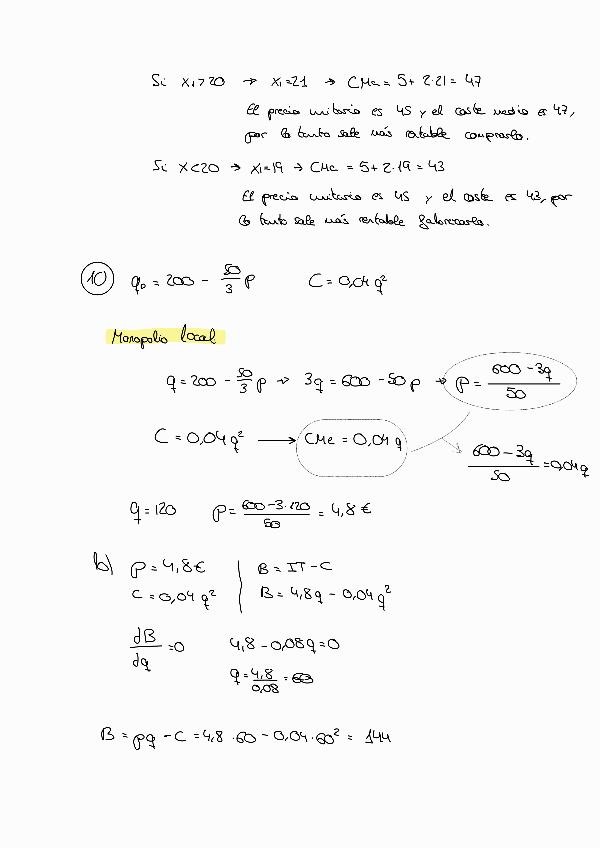 Si X₁>20 → X₁=21 → CMe = 5+2·21 = 47
El precio unitario es 45 y el coste medio es 47,
por lo tanto sale más rentable comprarlo.
Si X<20 → X₁=19 → CMe = 5+2·19 = 43
El precio unitario es 45 y el coste es 43, por
lo tanto sale más rentable fabricarlo.
10 q₀ = 200 - 50/3 p C = 0,04 q²
Monopolio local
q = 200 - 50/3 p → 3q = 600 - 50p → p = (600 - 3q)/50
C = 0,04 q² → CMe = 0,04 q (600 - 3q)/50 = 0,04q
q = 120 p = (600 - 3·120)/50 = 4,8 €
b) p = 4,8 € | B = IT - C
C = 0,04 q² | B = 4,8q - 0,04 q²
dB/dq = 0 4,8 - 0,08q = 0
q = 4,8/0,08 = 60
B = pq - C = 4,8·60 - 0,04·60² = 144